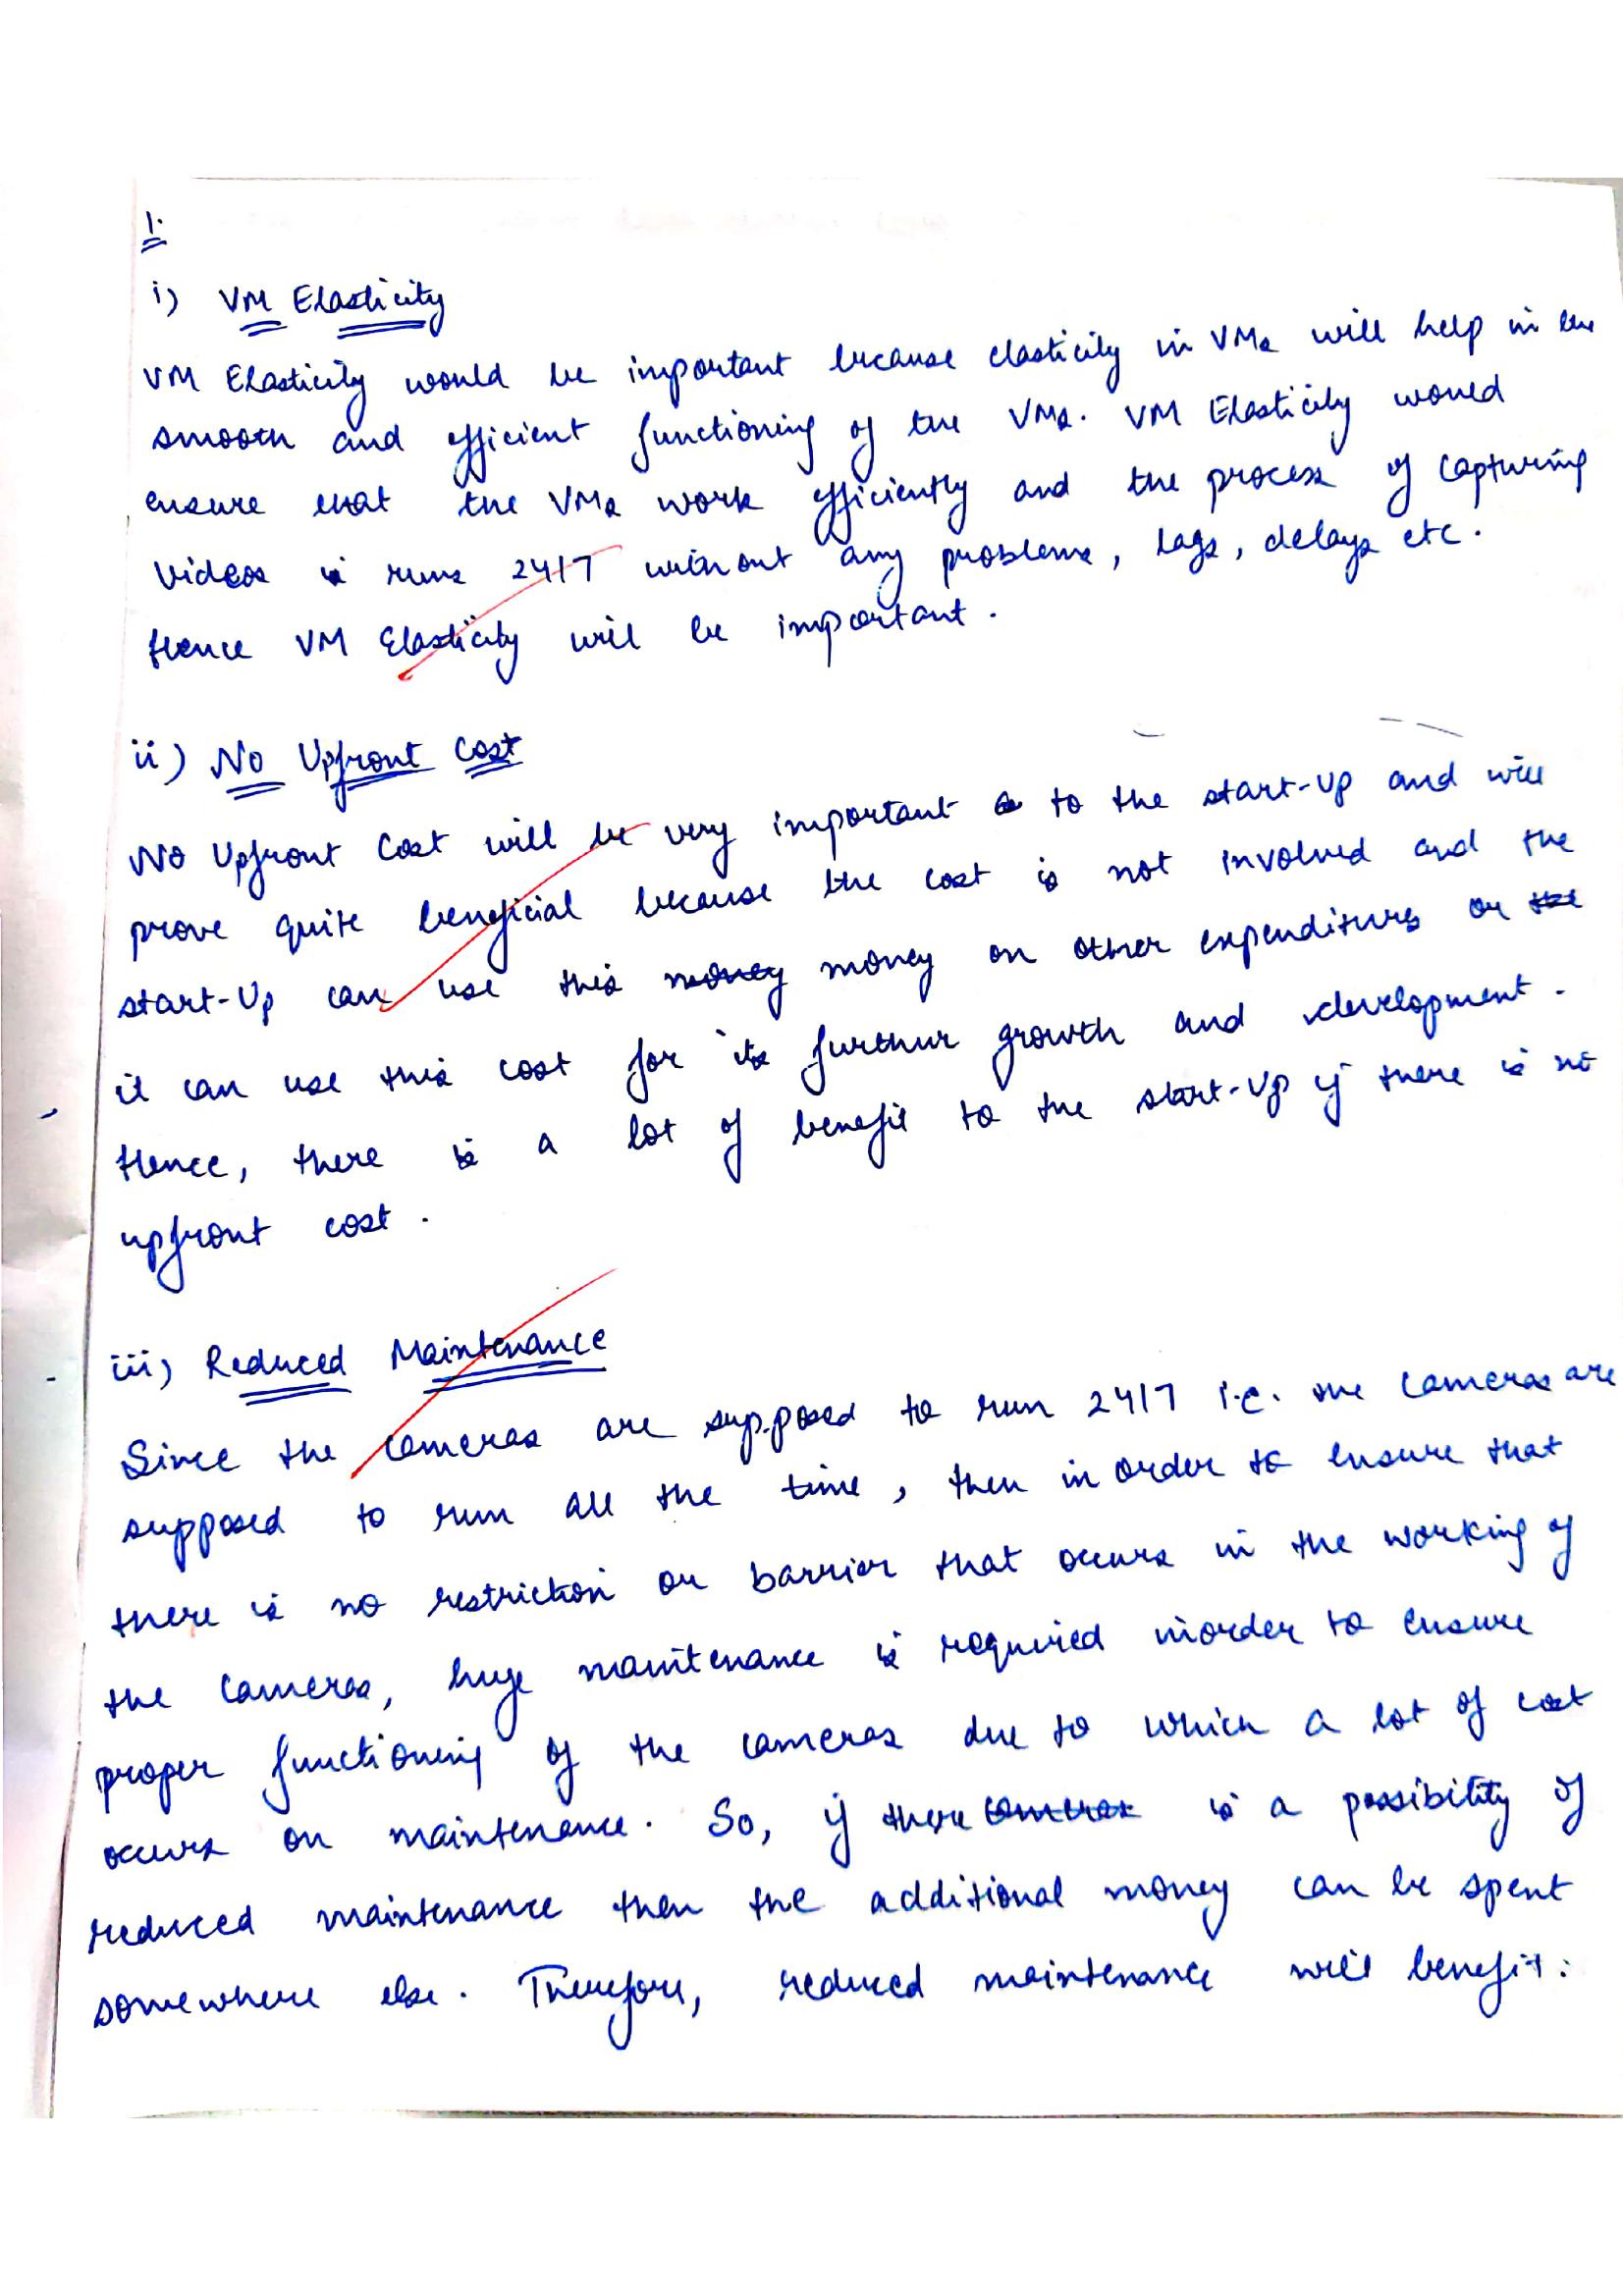 1.
i) VM Elasticity
VM Elasticity would be important because elasticity in VMs will help in the
smooth and efficient functioning of the VMs. VM Elasticity would
ensure that the VMs work efficiently and the process of capturing
videos is runs 24/7 without any problems, lags, delays etc.
Hence VM Elasticity will be important.
ii) No Upfront Cost
No Upfront Cost will be very important to the start-up and will
prove quite beneficial because the cost is not involved and the
start-Up can use this money money on other expenditures or the
it can use this cost for its further growth and development.
Hence, there is a lot of benefit to the start-Up if there is no
upfront cost.
iii) Reduced Maintenance
Since the cameras are supposed to run 24/7 i.e. the cameras are
supposed to run all the time, then in order to ensure that
there is no restriction or barrier that occurs in the working of
the cameras, huge maintenance is required inorder to ensure
proper functioning of the cameras due to which a lot of cost
occurs on maintenance. So, if there cameras is a possibility of
reduced maintenance then the additional money can be spent
somewhere else. Therefore, reduced maintenance will benefit.